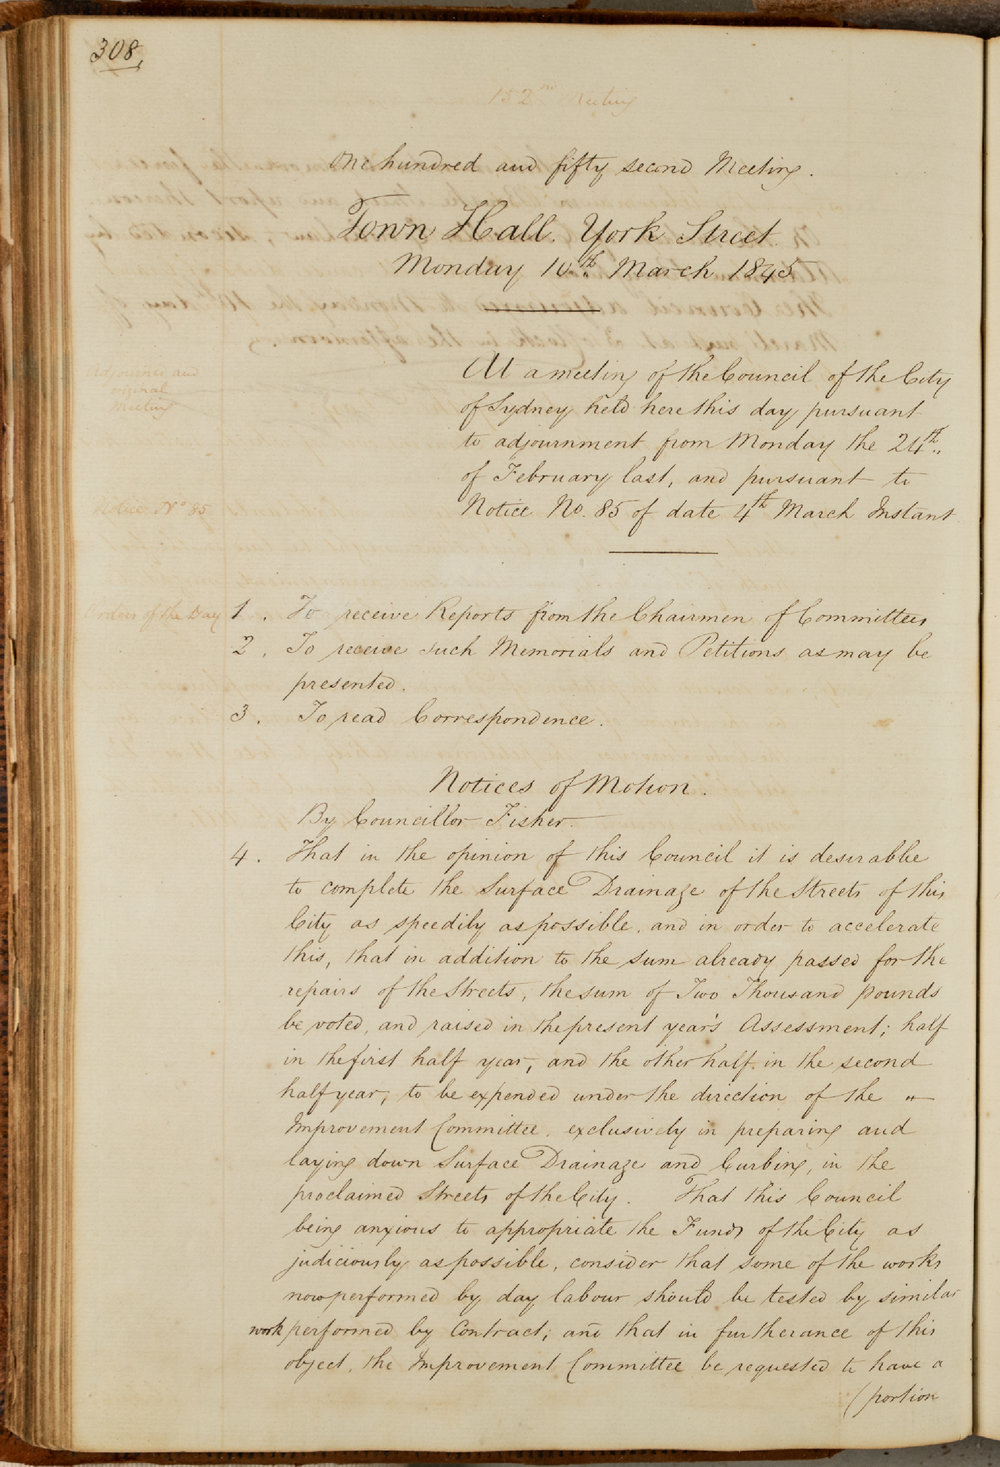 308,
152nd Meeting
One hundred and fifty second Meeting.
Town Hall. York Street.
Monday 10th March 1845
Adjourned and
original
Meeting
At a meeting of the Council of the City
of Sydney held here this day pursuant
to adjournment from Monday the 24th
of February last, and pursuant to
Notice No. 85 of date 4th March Instant
Notice No 85
Orders of the Day
1. To receive Reports from the Chairmen of Committees
2. To receive such Memorials and Petitions as may be
presented.
3. To read Correspondence.
Notices of Motion.
By Councillor Fisher.
4. That in the opinion of this Council it is desirable
to complete the Surface Drainage of the Streets of this
City as speedily as possible, and in order to accelerate
this, that in addition to the sum already passed for the
repairs of the Streets, the sum of Two Thousand pounds
be voted, and raised in the present year's Assessment; half
in the first half year, and the other half in the second
half year, to be expended under the direction of the "
Improvement Committee, exclusively in preparing and
laying down Surface Drainage and Curbing, in the
proclaimed Streets of the City. That this Council
being anxious to appropriate the Funds of the City as
judiciously as possible, consider that some of the works
now performed by day labour should be tested by similar
work performed by Contract; and that in furtherance of this
object, the Improvement Committee be requested to have a
(portion